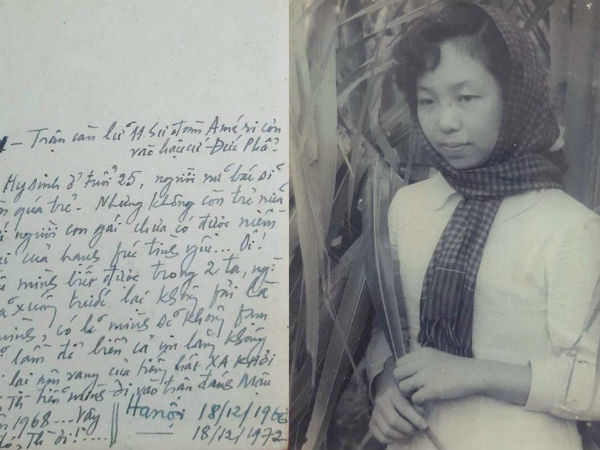 – Trận càn lữ 11 Sư đoàn Américơn
vào hậu cứ Đức Phổ.
Hy sinh ở tuổi 25, người nữ bác sĩ
quá trẻ. Nhưng không còn trẻ nữa
người con gái chưa có được niềm
của hạnh fúc tình yêu... Ôi!
mình biết được trong 2 ta, ng
xuống trước lại không fải là
mình, có lẽ mình đã không fam
làm để biển cả im lặng không
lại ngân vang của tiếng hát XA KHƠI
Th tiễn mình đi vào trận đánh Mậu
1968... Vậy
Th ơi!...
Hanội 18/12/1966
18/12/1972